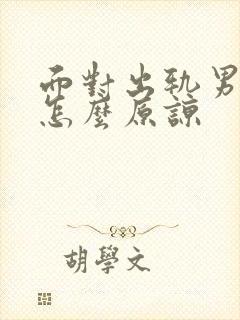 面對出軌男
怎麼原諒
胡學文